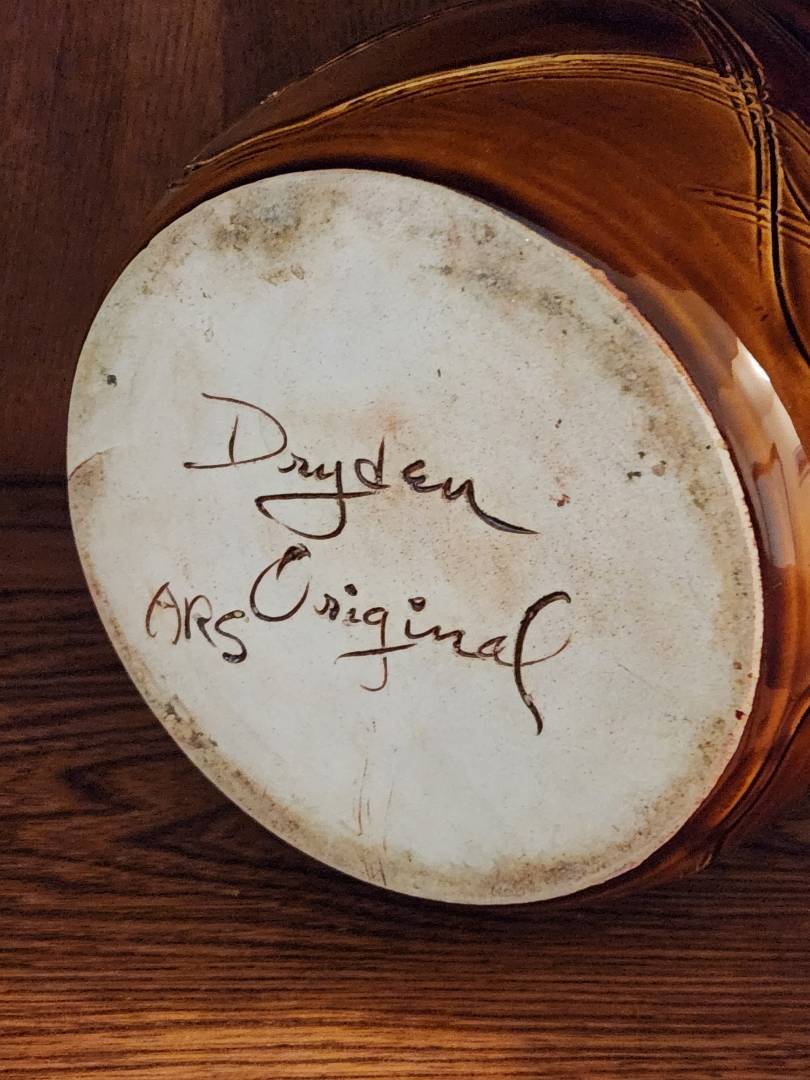 Dryden
Original
ARS